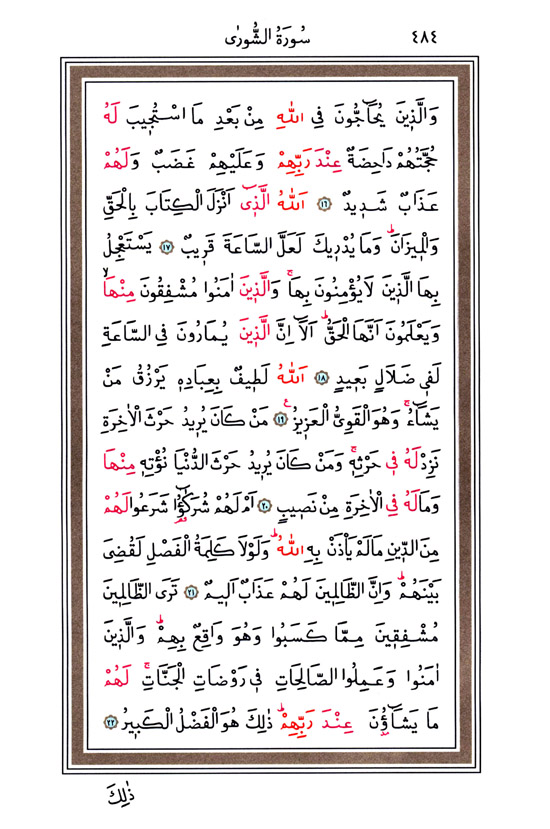 سُورَةُ الشُّورٰى ٤٨٤
وَالَّذ۪ينَ يُحَٓاجُّونَ فِي اللّٰهِ مِنْ بَعْدِ مَا اسْتُج۪يبَ لَهُ
حُجَّتُهُمْ دَاحِضَةٌ عِنْدَ رَبِّهِمْ وَعَلَيْهِمْ غَضَبٌ وَلَهُمْ
عَذَابٌ شَد۪يدٌ ﴿١٦﴾ اَللّٰهُ الَّذ۪ٓي اَنْزَلَ الْكِتَابَ بِالْحَقِّ
وَالْم۪يزَانَۜ وَمَا يُدْر۪يكَ لَعَلَّ السَّاعَةَ قَر۪يبٌ ﴿١٧﴾ يَسْتَعْجِلُ
بِهَا الَّذ۪ينَ لَا يُؤْمِنُونَ بِهَاۚ وَالَّذ۪ينَ اٰمَنُوا مُشْفِقُونَ مِنْهَاۙ
وَيَعْلَمُونَ اَنَّهَا الْحَقُّۜ اَلَٓا اِنَّ الَّذ۪ينَ يُمَارُونَ فِي السَّاعَةِ
لَف۪ي ضَلَالٍ بَع۪يدٍ ﴿١٨﴾ اَللّٰهُ لَط۪يفٌ بِعِبَادِه۪ يَرْزُقُ مَنْ
يَشَٓاءُۚ وَهُوَ الْقَوِيُّ الْعَز۪يزُ۟ ﴿١٩﴾ مَنْ كَانَ يُر۪يدُ حَرْثَ الْاٰخِرَةِ
نَزِدْ لَهُ ف۪ي حَرْثِه۪ۚ وَمَنْ كَانَ يُر۪يدُ حَرْثَ الدُّنْيَا نُؤْتِه۪ مِنْهَا
وَمَا لَهُ فِي الْاٰخِرَةِ مِنْ نَص۪يبٍ ﴿٢٠﴾ اَمْ لَهُمْ شُرَكٰٓؤُ۬ا شَرَعُوا لَهُمْ
مِنَ الدّ۪ينِ مَا لَمْ يَأْذَنْ بِهِ اللّٰهُۜ وَلَوْلَا كَلِمَةُ الْفَصْلِ لَقُضِيَ
بَيْنَهُمْۜ وَاِنَّ الظَّالِم۪ينَ لَهُمْ عَذَابٌ اَل۪يمٌ ﴿٢١﴾ تَرَى الظَّالِم۪ينَ
مُشْفِق۪ينَ مِمَّا كَسَبُوا وَهُوَ وَاقِعٌ بِهِمْۜ وَالَّذ۪ينَ
اٰمَنُوا وَعَمِلُوا الصَّالِحَاتِ ف۪ي رَوْضَاتِ الْجَنَّاتِۚ لَهُمْ
مَا يَشَٓاؤُ۫نَ عِنْدَ رَبِّهِمْۜ ذٰلِكَ هُوَ الْفَضْلُ الْكَب۪يرُ ﴿٢٢﴾
ذٰلِكَ